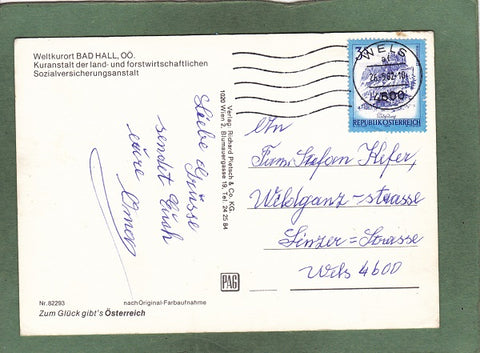 Weltkurort BAD HALL, OÖ.
Kuranstalt der land- und forstwirtschaftlichen
Sozialversicherungsanstalt
Liebe Grüsse
sendet Euch
eure Oma
Verlag: Richard Pietsch & Co. KG.
1020 Wien 2, Blumauergasse 19, Tel. 24 25 84
PAG
WELS
4600
REPUBLIK ÖSTERREICH
An
Firm. Stefan Kifer,
Wildganz-strasse
Linzer-Strasse
Wels 4600
Nr. 82293 nach Original-Farbaufnahme
Zum Glück gibt's Österreich